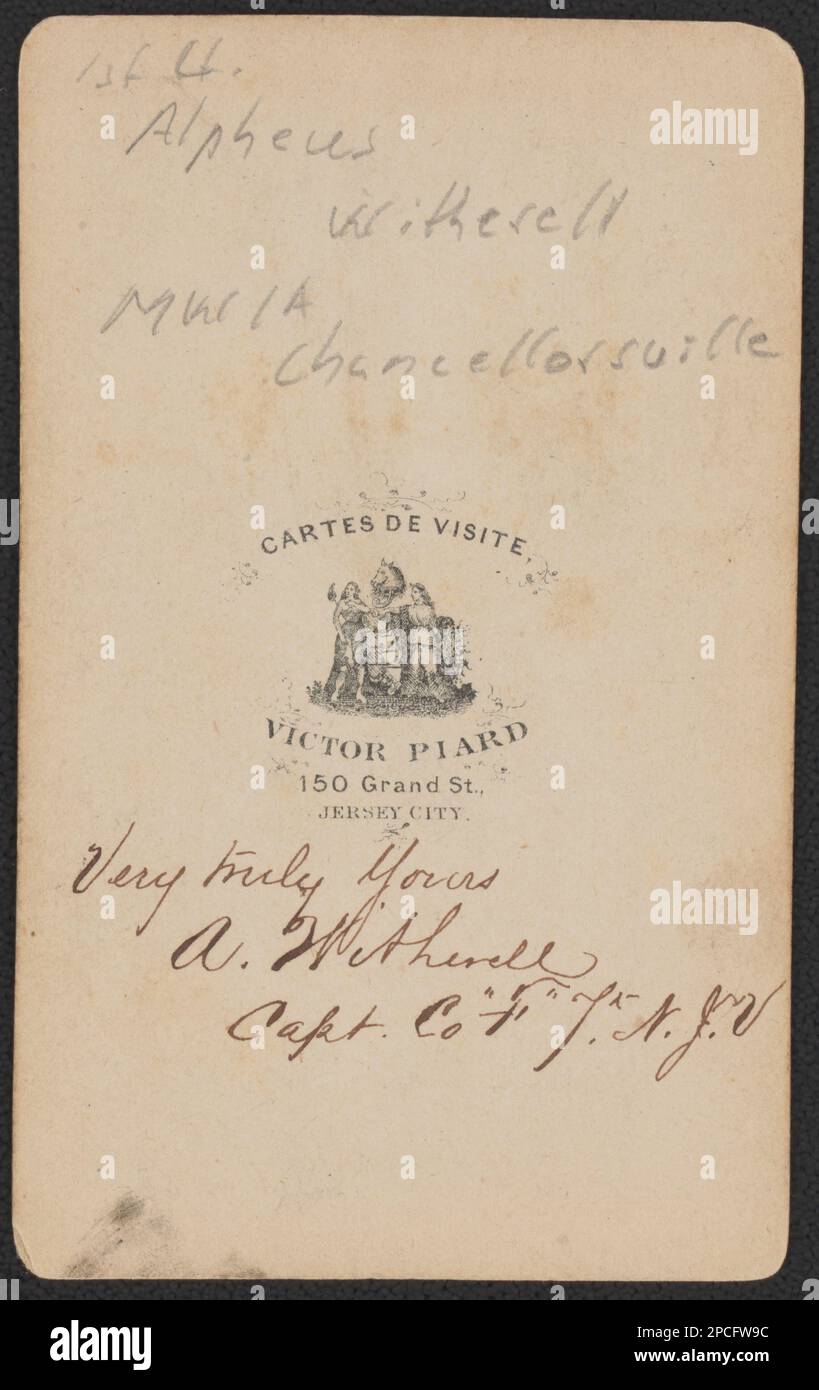 1st Lt.
Alpheus
Witherell
MWIA
Chancellorsville
CARTES DE VISITE,
VICTOR PIARD
150 Grand St.,
JERSEY CITY.
Very truly Yours
A. Witherell
Capt. Co "F" 7. N. J. V
alamy
alamy
alamy
Image ID: 2PCFW9C
www.alamy.com